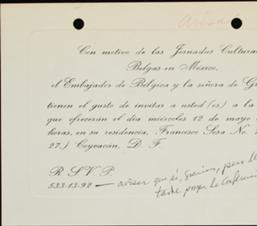 Con motivo de las Jornadas Cultura
Belgas en México,
el Embajador de Bélgica y la señora de Gr
tienen el gusto de invitar a usted (es) a la
que ofrecerán el día miércoles 12 de mayo
horas, en su residencia, Francisco Sosa No.
27,) Coyoacán, D. F.
R. S. V. P.
533-13-92 — avisar que sí, gracias, pero
tarde